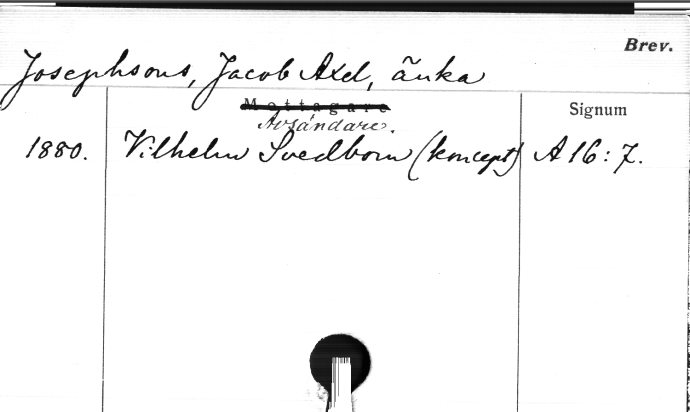 Brev.
Josephsons, Jacob Axel, änka
Mottagare
Signum
Avsändare.
1880. Vilhelm Svedbom (koncept) A 16:7.